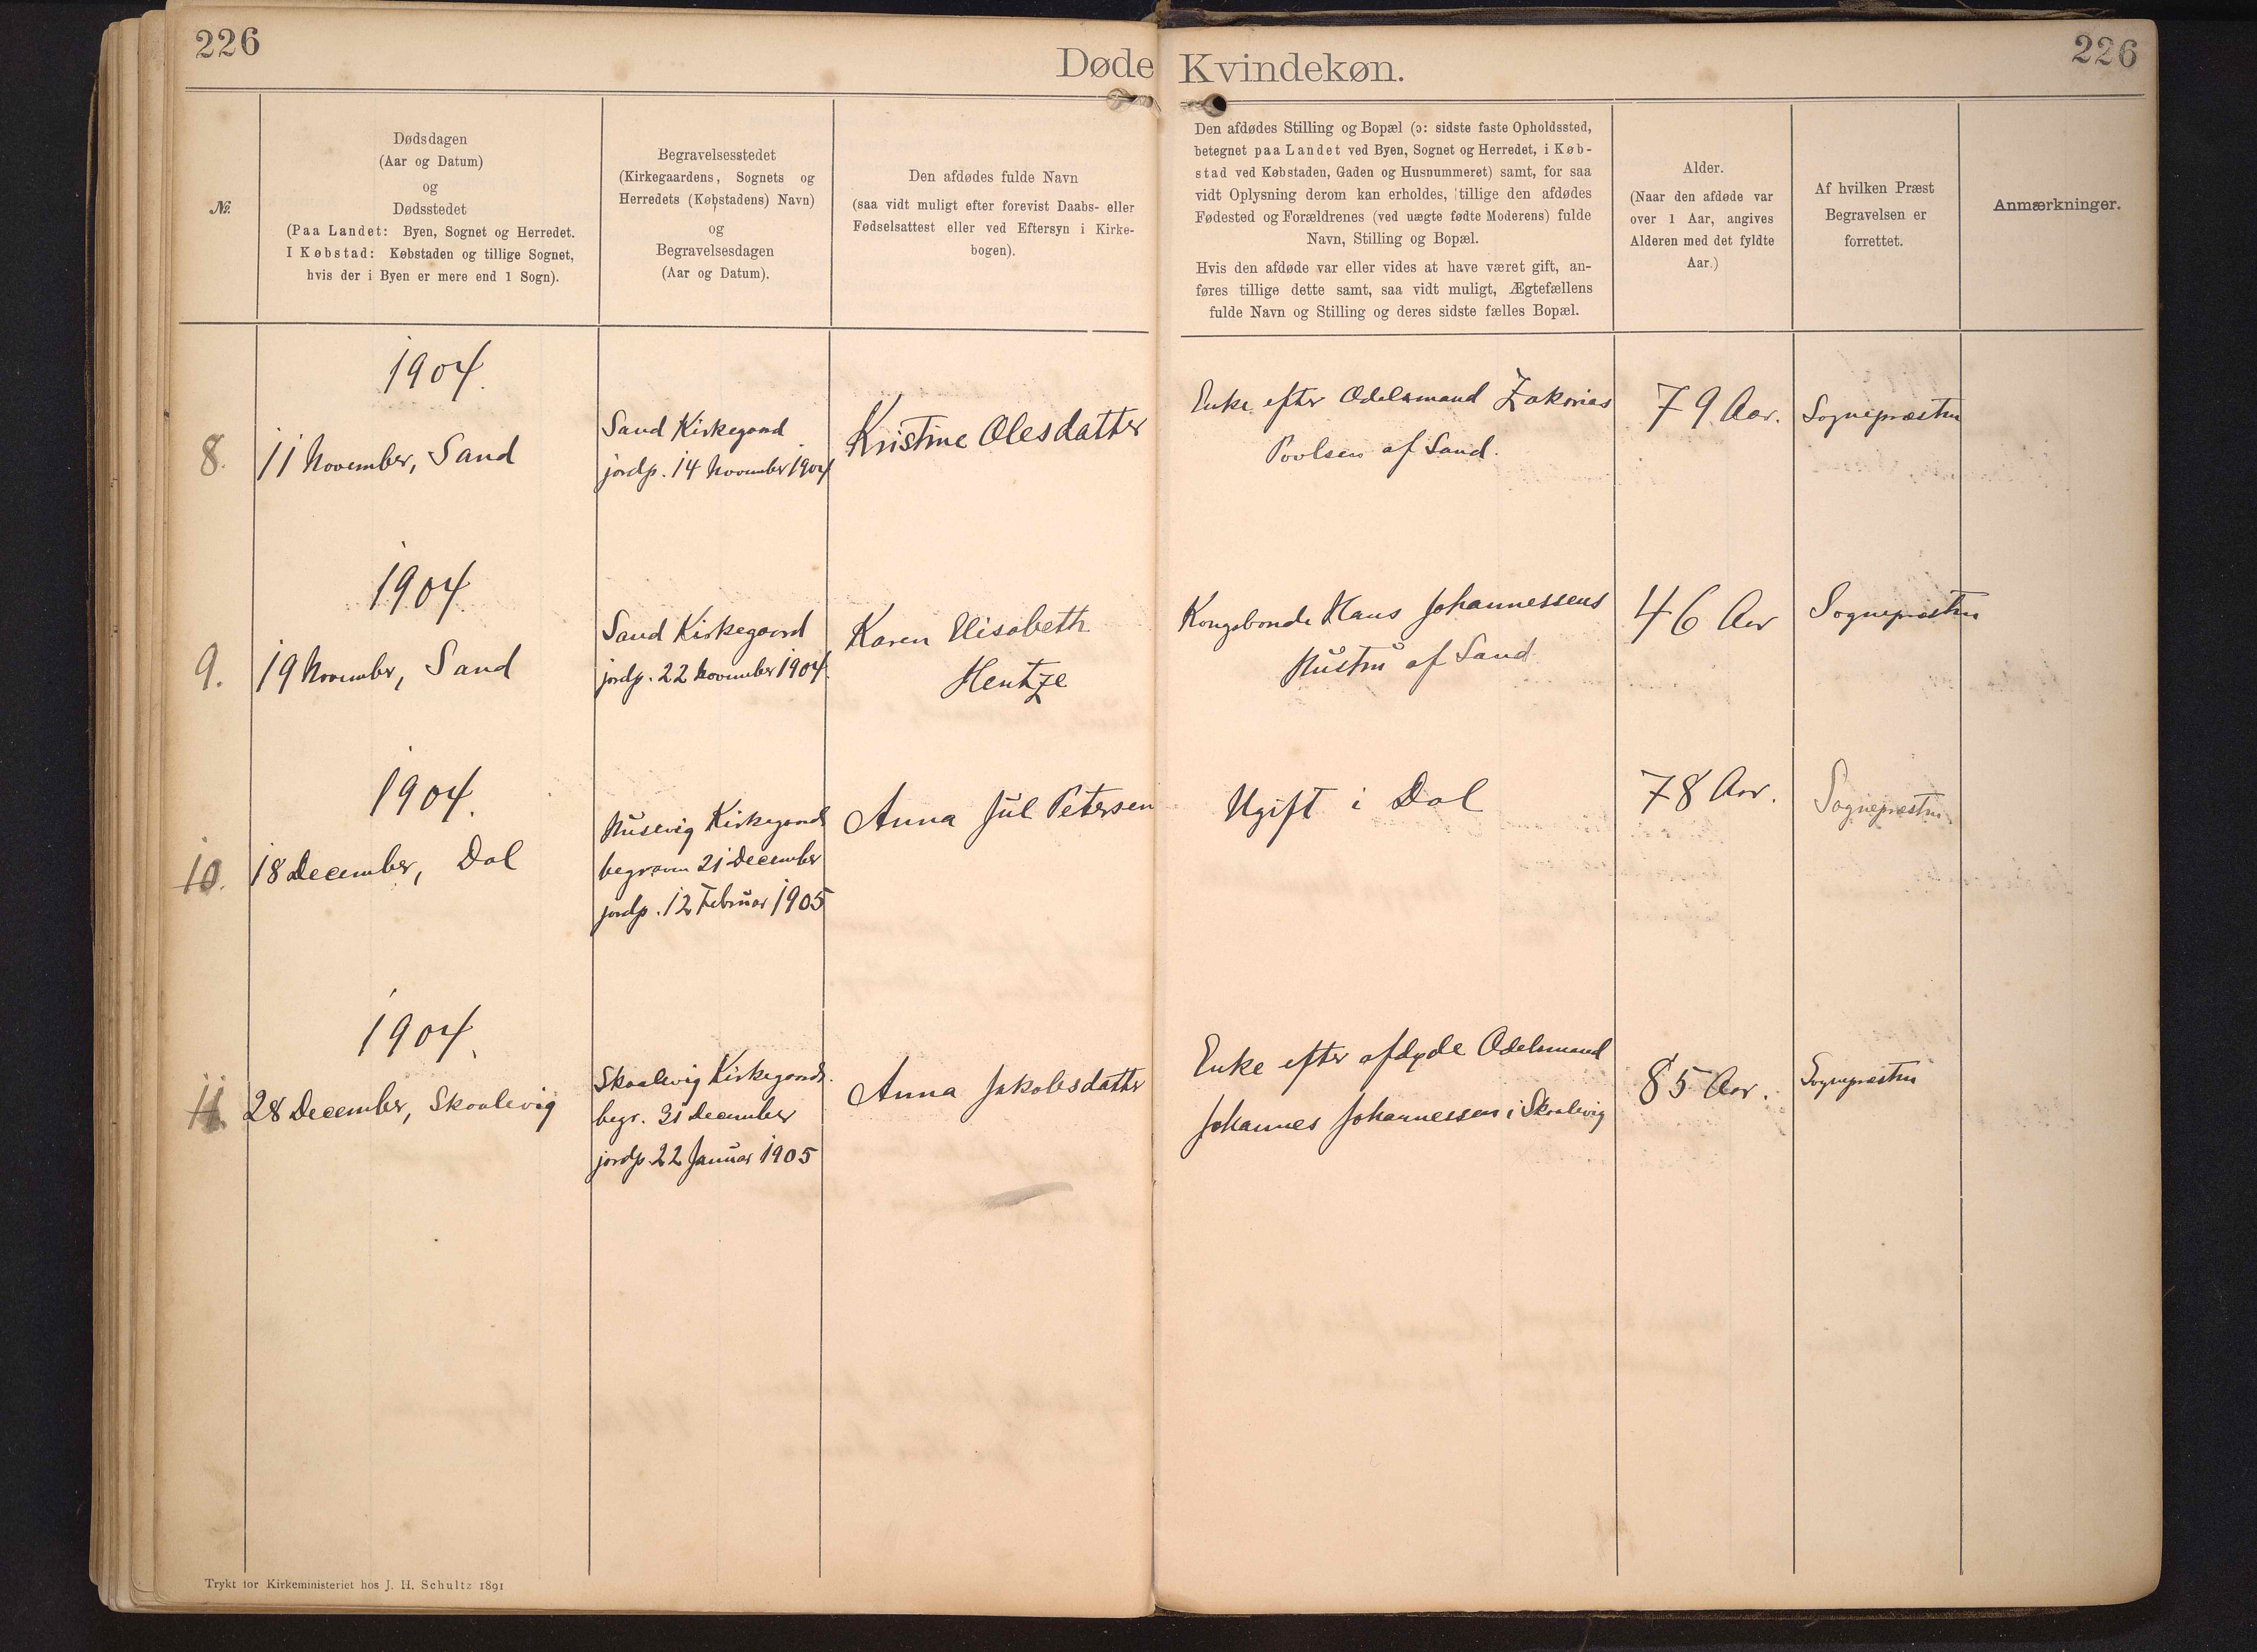 226
226
Døde Kvindekøn.
№.
Dødsdagen
(Aar og Datum)
og
Dødsstedet
(Paa Landet: Byen, Sognet og Herredet.
I Købstad: Købstaden og tillige Sognet,
hvis der i Byen er mere end 1 Sogn).
Begravelsesstedet
(Kirkegaardens, Sognets og
Herredets (Købstadens) Navn)
og
Begravelsesdagen
(Aar og Datum).
Den afdødes fulde Navn
(saa vidt muligt efter forevist Daabs- eller
Fødselsattest eller ved Eftersyn i Kirke-
bogen).
Den afdødes Stilling og Bopæl (ɔ: sidste faste Opholdssted,
betegnet paa Landet ved Byen, Sognet og Herredet, i Køb-
stad ved Købstaden, Gaden og Husnummeret) samt, for saa
vidt Oplysning derom kan erholdes, tillige den afdødes
Fødested og Forældrenes (ved uægte fødte Moderens) fulde
Navn, Stilling og Bopæl.
Hvis den afdøde var eller vides at have været gift, an-
føres tillige dette samt, saa vidt muligt, Ægtefællens
fulde Navn og Stilling og deres sidste fælles Bopæl.
Alder.
(Naar den afdøde var
over 1 Aar, angives
Alderen med det fyldte
Aar.)
Af hvilken Præst
Begravelsen er
forrettet.
Anmærkninger.
8.
1904.
11 November, Sand
Sand Kirkegaard
jordp. 14 November 1904
Kristine Olesdatter
Enke efter Odelsmand Zakarias
Poulsen af Sand.
79 Aar.
Sognepræsten
9.
1904
19 November, Sand
Sand Kirkegaard
jordp. 22 November 1904.
Karen Elisabeth
Hentze
Kongsbonde Hans Johannessens
Hustru af Sand
46 Aar
Sognepræsten
10.
1904.
18 December, Dal
Husevig Kirkegaard
begraven 21 December
jordp. 12 Februar 1905
Anna Jul Petersen
Ugift i Dal
78 Aar.
Sognepræsten
11.
1904.
28 December, Skaalevig
Skaalevig Kirkegaard.
begr. 31 December
jordp. 22 Januar 1905
Anna Jakobsdatter
Enke efter afdøde Odelsmand
Johannes Johannessen i Skaalevig
85 Aar.
Sognepræsten
Trykt for Kirkeministeriet hos J. H. Schultz 1891